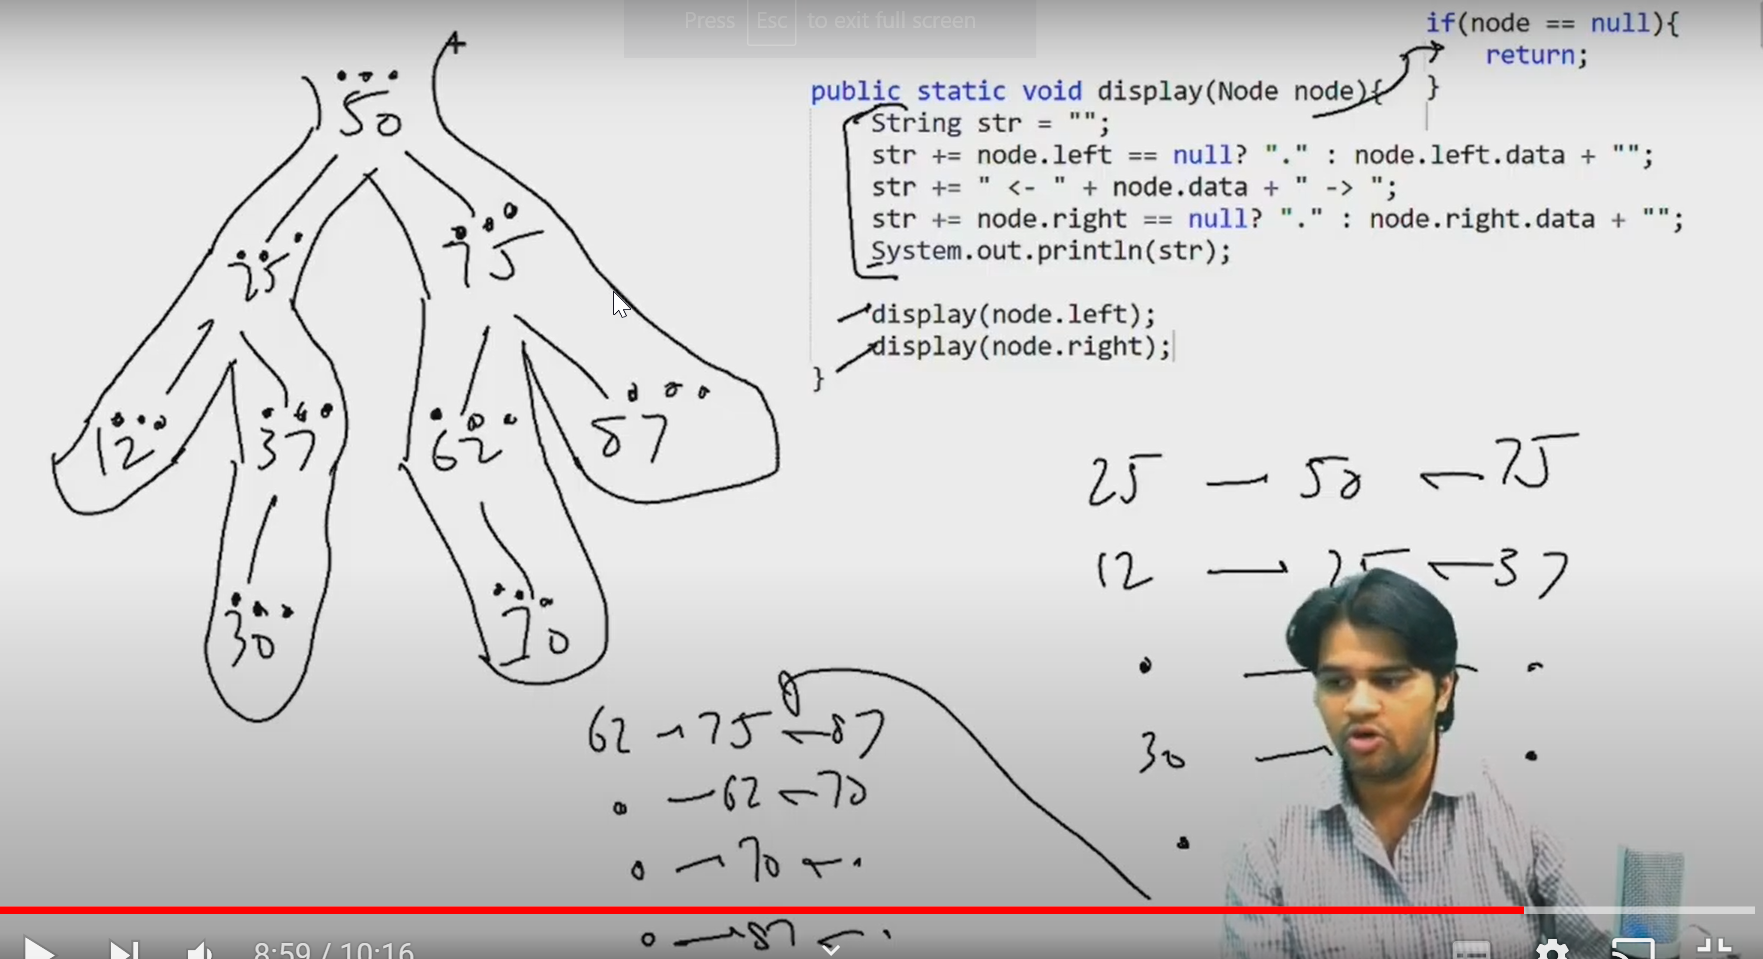 Press Esc to exit full screen
if(node == null){
return;
}
public static void display(Node node){
String str = "";
str += node.left == null? "." : node.left.data + "";
str += " <- " + node.data + " -> ";
str += node.right == null? "." : node.right.data + "";
System.out.println(str);
display(node.left);
display(node.right);
}
50
25 75
12 37 62 87
30 70
25 — 50 ← 75
12 → 25 ← 37
. — .
30 — .
.
62 → 75 ← 87
. — 62 ← 70
. → 70 ← .
. → 87 ← .
8:59 / 10:16